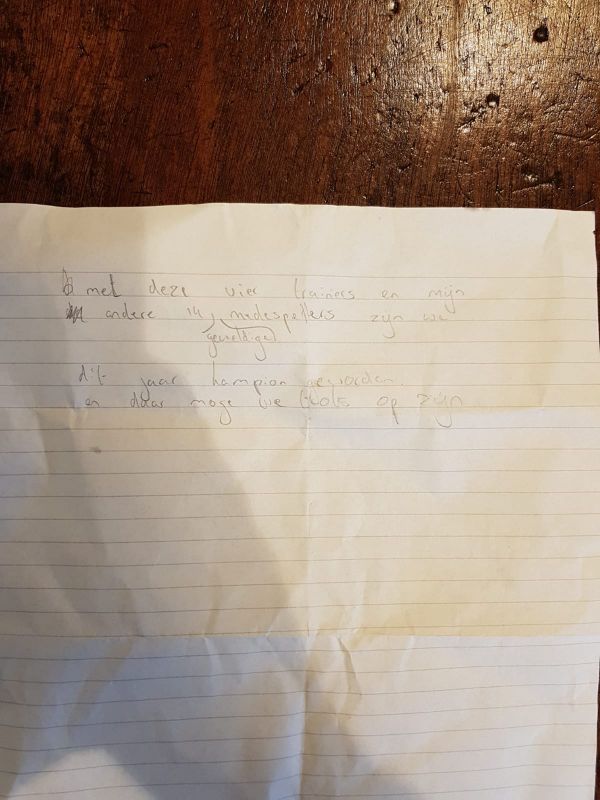 met deze vier trainers en mijn
andere 14, medespellers zijn we
geweldige
dit jaar hampion geworden.
en daar moge we trots op zijn